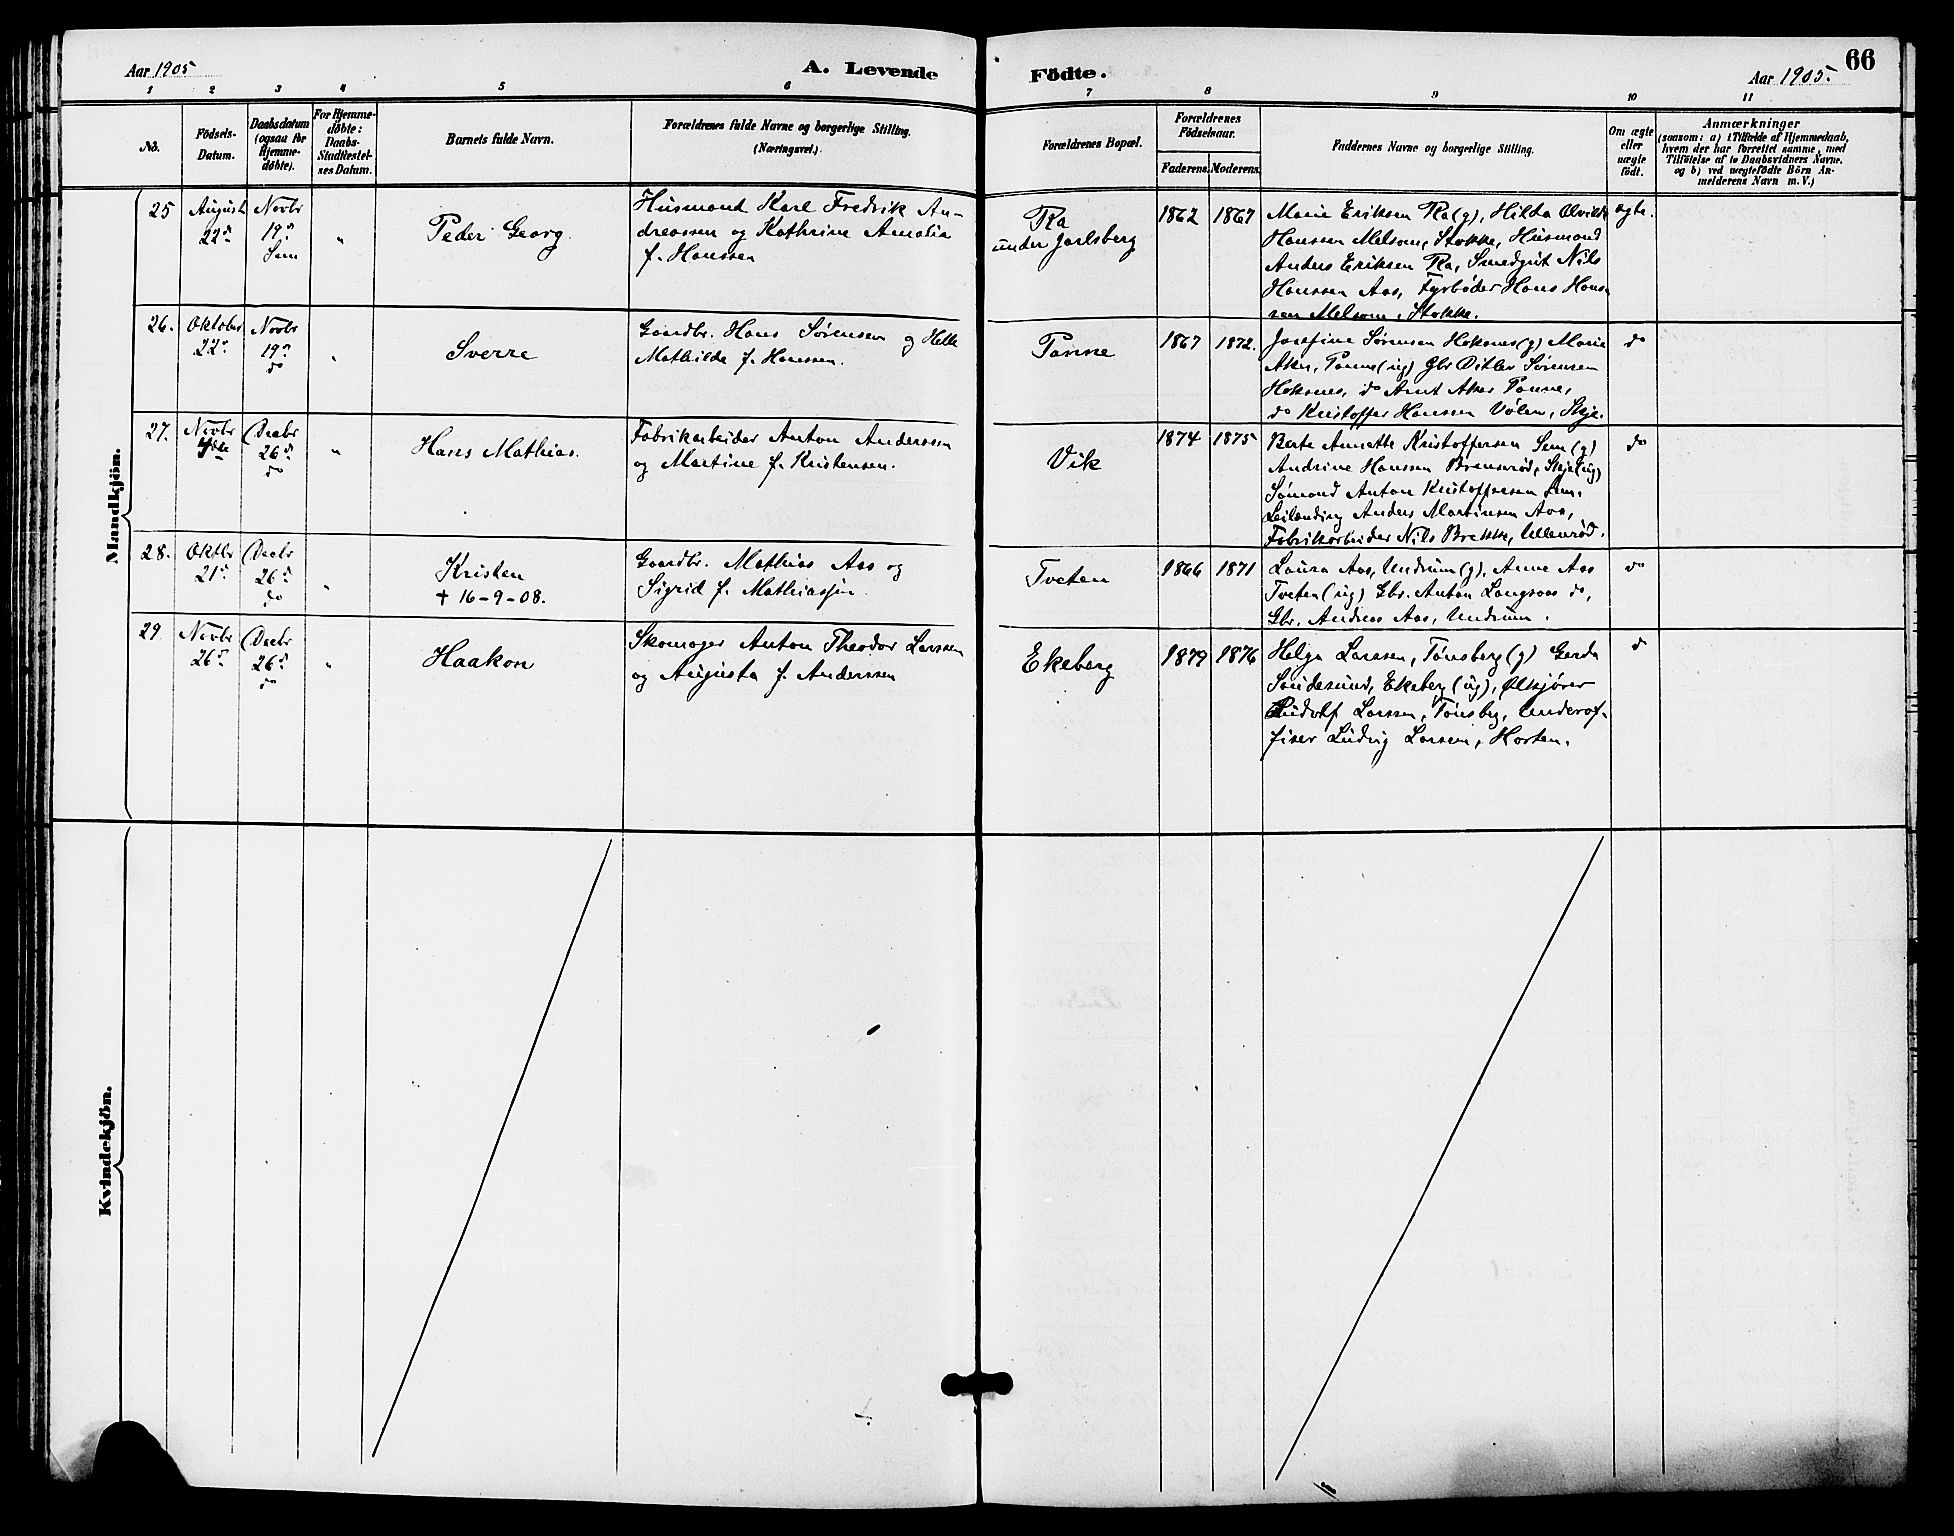 Aar 1905
A. Levende
Födte.
Aar 1905.
66
1 2 3 4 5 6 7 8 9 10 11
No.
Födsels-
Datum.
Daabsdatum
(ogsaa for
Hjemme-
döbte).
For Hjemme-
döbte:
Daabs-
Stadfæstel-
ses Datum.
Barnets fulde Navn.
Forældrenes fulde Navne og borgerlige Stilling.
(Næringsvei.)
Forældrenes Bopæl.
Forældrenes
Födselsaar.
Faderens. Moderens.
Faddernes Navne og borgerlige Stilling.
Om ægte
eller
uægte
födt.
Anmærkninger
(saasom: a) i Tilfælde af Hjemmedaab,
hvem der har forrettet samme, med
Tilföielse af to Daabsvidners Navne.
og b) ved uægtefödte Börn An-
melderens Navn m. V.)
Mandkjön.
25
August
22d
Novbr
19d
Sem
"
Peder Georg.
Husmand Karl Fredrik An-
dreassen og Kathrine Amalia
f. Hanssen
Ra
under Jarlsberg
1862
1867
Marie Eriksen Ra (g), Hilda
Hanssen Melsom, Stokke, Husmand
Anders Eriksen Ra, Smedgut Nils
Hanssen Aas, Fyrbøder Hans Hans
sen Melsom, Stokke.
ægte.
26.
Oktober
22d
Novbr
19d
do
"
Sverre
Gaardbr. Hans Sørensen og
Mathilde f. Hanssen.
Tanne
1867
1872.
Josefine Sørensen Hoksnes (g) Marie
Aker, Tanne (ug) Gbr Ditlev Sørensen
Hoksnes, do Arnt Aker Tanne,
do Kristoffer Hanssen Vølen, Skje.
do
27.
Novbr
Decbr
26d
do
"
Hans Mathias.
Fabrikarbeider Anton Anderssen
og Martine f. Kristensen.
Vik
1874
1875
Berte Annette Kristoffersen Sem (g)
Andrine Hanssen Brenserød, Skje (ug)
Sømand Anton Kristoffersen Sem.
Leilænding Anders Martinsen Aas,
Fabrikarbeider Nils Brekke, Ullenrød.
do
28.
Oktbr
21d
Decbr
26d
do
"
Kristen
† 16-9-08.
Gaardbr. Mathias Aas og
Sigrid f. Mathiassen.
Tveten
1866
1871
Laura Aas, Undrum (g), Anne Aas
Tveten (ug) Gbr. Anton Langaas do,
Gbr. Andreas Aas, Undrum.
do
29
Novbr
26d
Decbr
26d
do
"
Haakon
Skomager Anton Theodor Larssen
og Augusta f. Anderssen
Ekeberg
1879
1876
Helga Larssen, Tønsberg (g) Gerda
Sandesund, Ekeberg (ug), Ølkjører
Rudolf Larssen, Tønsbg, Underof-
fiser Ludvig Larsen, Horten.
d
Kvindekjön.